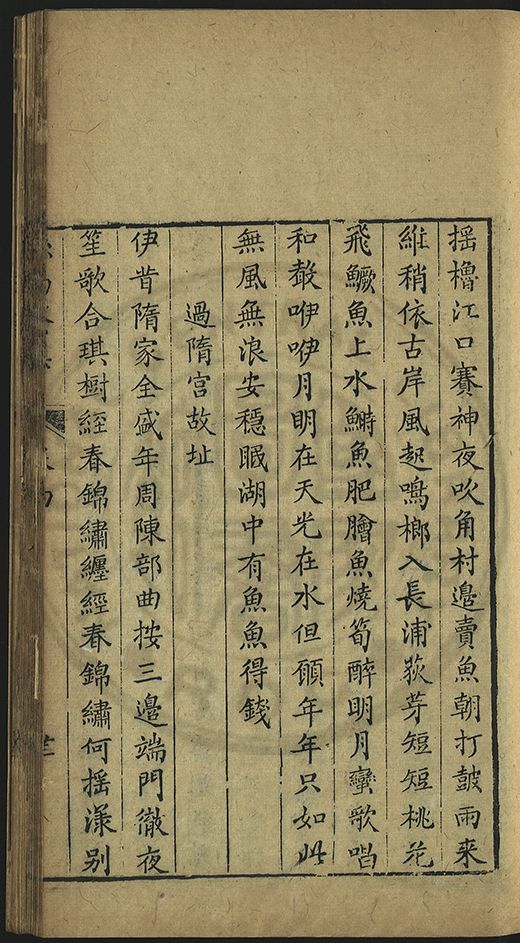 揺櫓江口賽神夜吹角村邉賣魚朝打皷雨来
維稍依古岸風起鳴榔入長浦荻芽短短桃花
飛鱖魚上水鰣魚肥膾魚燒筍醉明月蠻歌唱
和數咿咿月明在天光在水但願年年只如此
無風無浪安穩眠湖中有魚魚得錢
過隋宫故址
伊昔隋家全盛年周陳部曲按三邉端門徹夜
笙歌合琪樹經春錦繡纒經春錦繡何揺漾别